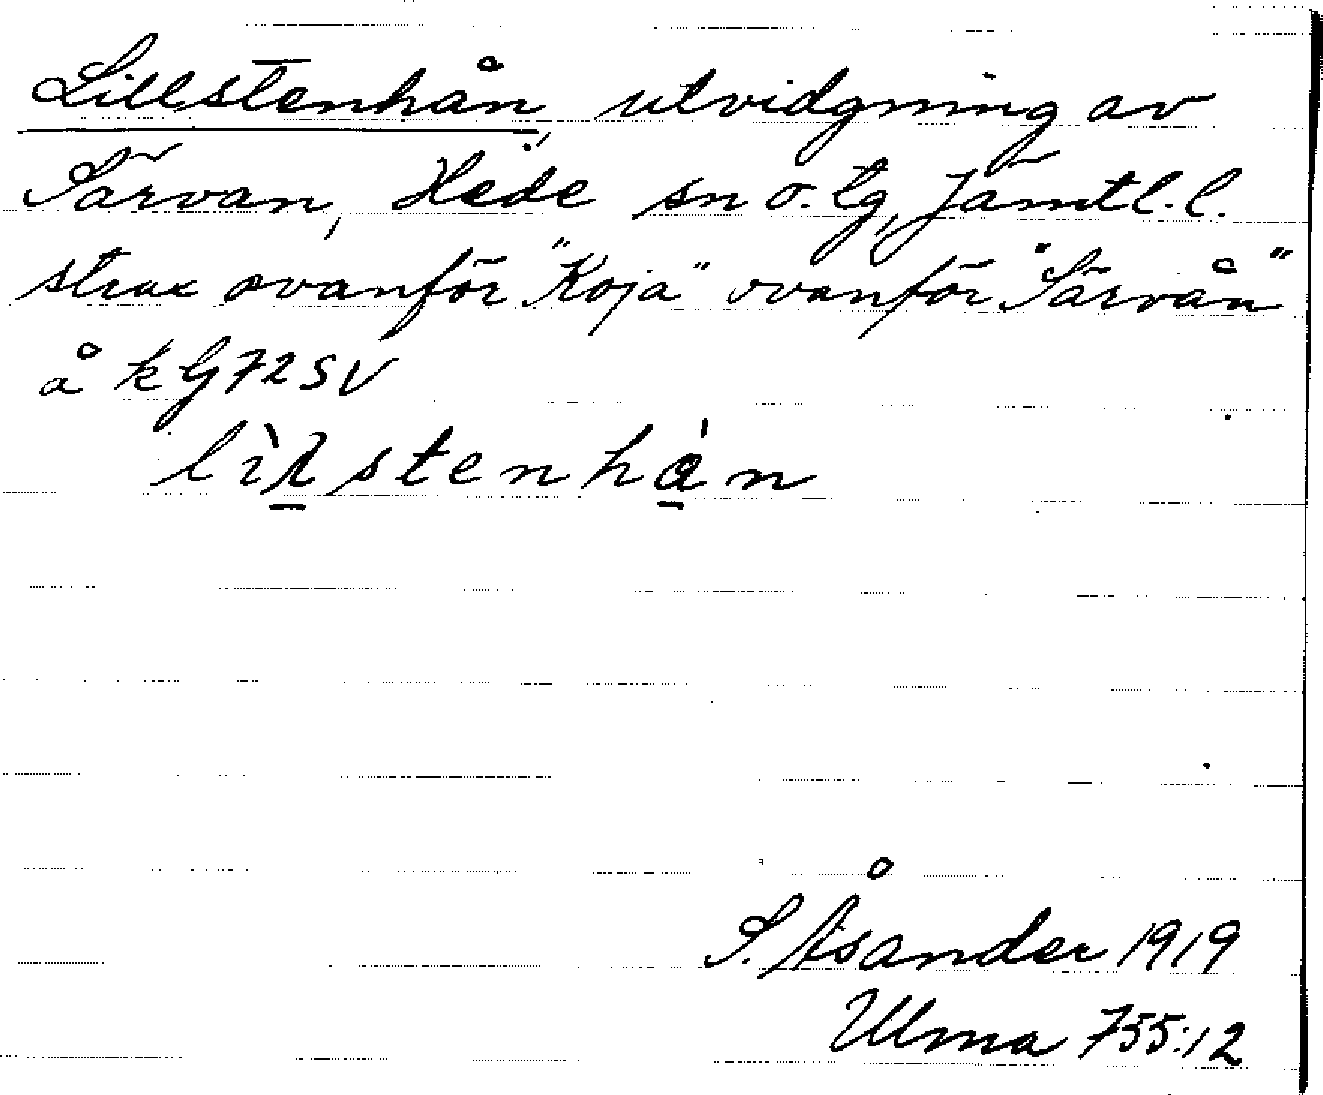 Lillstenhån, utvidgning av
Särvan, Hede sn o. tg, Jämtl. l.
strax ovanför "Koja" ovanför "Särvån"
å k G 72 SV
lìlstenhån
S. Åsander 1919
Ulma 755:12